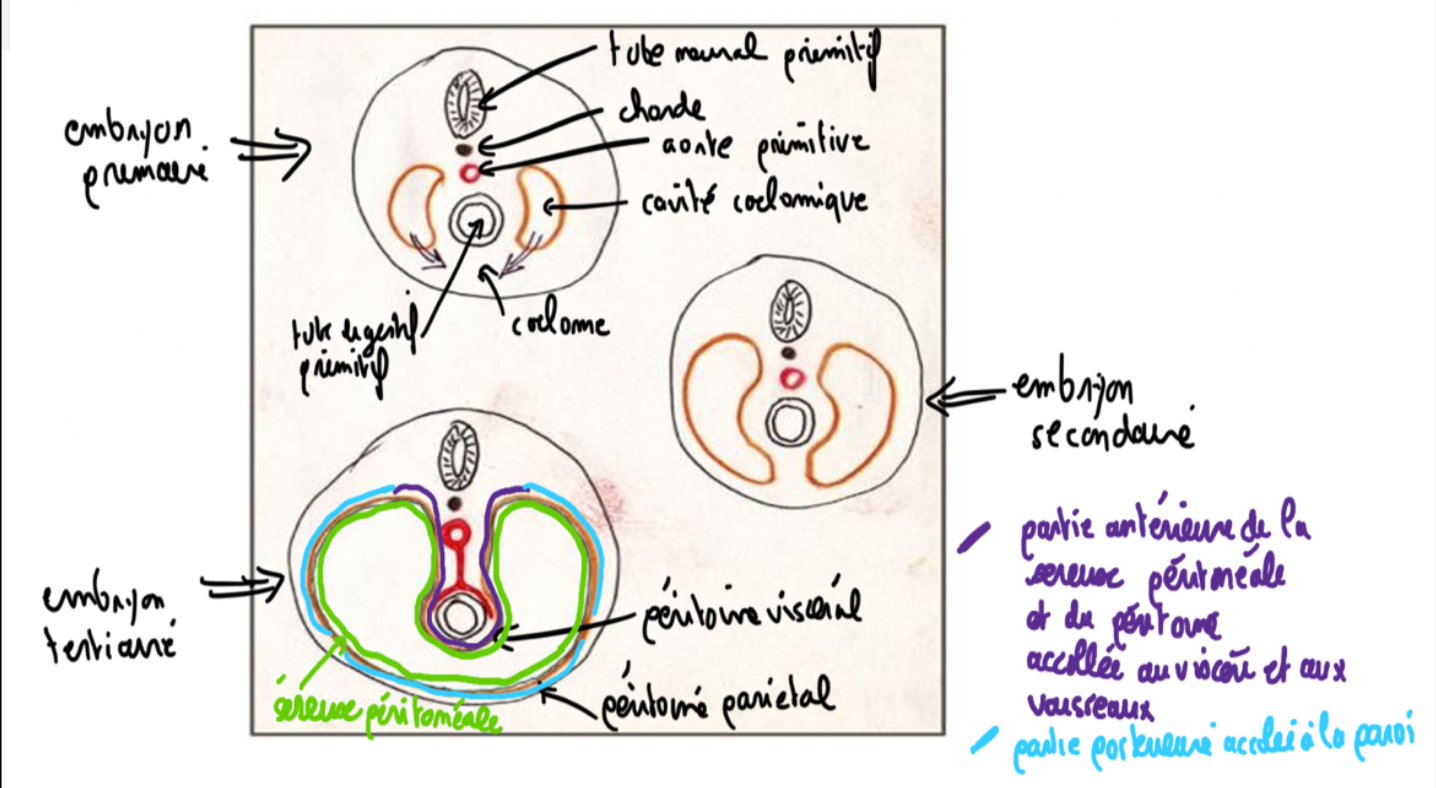 tube neural primitif
chorde
aorte primitive
cavité coelomique
embryon
primaire
tube digestif
primitif
coelome
embryon
secondaire
embryon
tertiaire
péritoine viscéral
péritoine parietal
séreuse péritonéale
partie antérieure de la
sereuse péritonéale
et du péritoine
accollée au viscère et aux
vaisseaux
partie postérieure accolée à la paroi